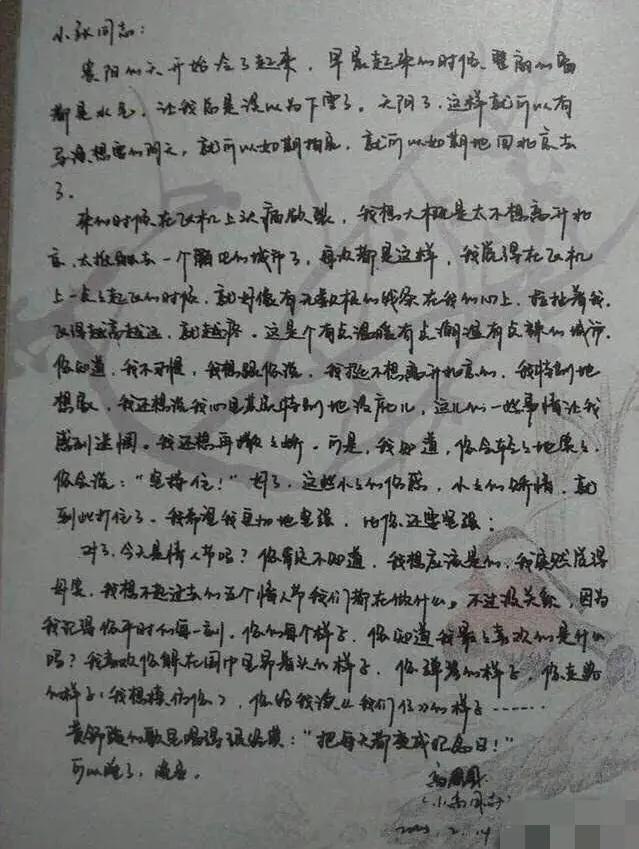 小张同志：
襄阳的天开始冷了起来，早晨起来的时候，里的窗
都是水气，让我总是误以为下雪了。天阴了，这样就可以有
导演想要的阴天，就可以如期拍完，就可以如期地回北京去
了。
来的时候在飞机上头痛欲裂，我想大概是太不想离开北
京，太抵触去一个陌生的城市了，每次都是这样，我觉得在飞机
上一点点起飞的时候，就好像有无数根的线条在我的心上，拉扯着我，
飞得越高越远，就越疼。这是个有点温暖有点潮湿有点辣的城市。
你知道，我不习惯，我想跟你说，我挺不想离开北京的，我特别地
想家，我还想说我心里其实特别地没底儿，这儿的一些事情让我
感到迷惘。我还想再撒点娇。可是，我知道，你会轻轻地笑笑，
你会说：“坚持住！”好了，这些小小的伤感，小小的矫情，就
到此打住了。我希望我更加地坚强，比你还要坚强！
对了，今天是情人节吗？你肯定不知道，我想应该是的，我突然觉得
好笑，我想不起过去的五个情人节我们都在做什么。不过没关系，因为
我记得你平时的每一刻，你的每个样子，你知道我最喜欢的是什么
吗？我喜欢你的样子，你弹琴的样子，你走路
的样子（我想模仿你），你给我读的样子……
黄舒骏的歌里唱得很好：“把每天都变成纪念日！”
可以睡了，晚安。
（小高同志）
2.14